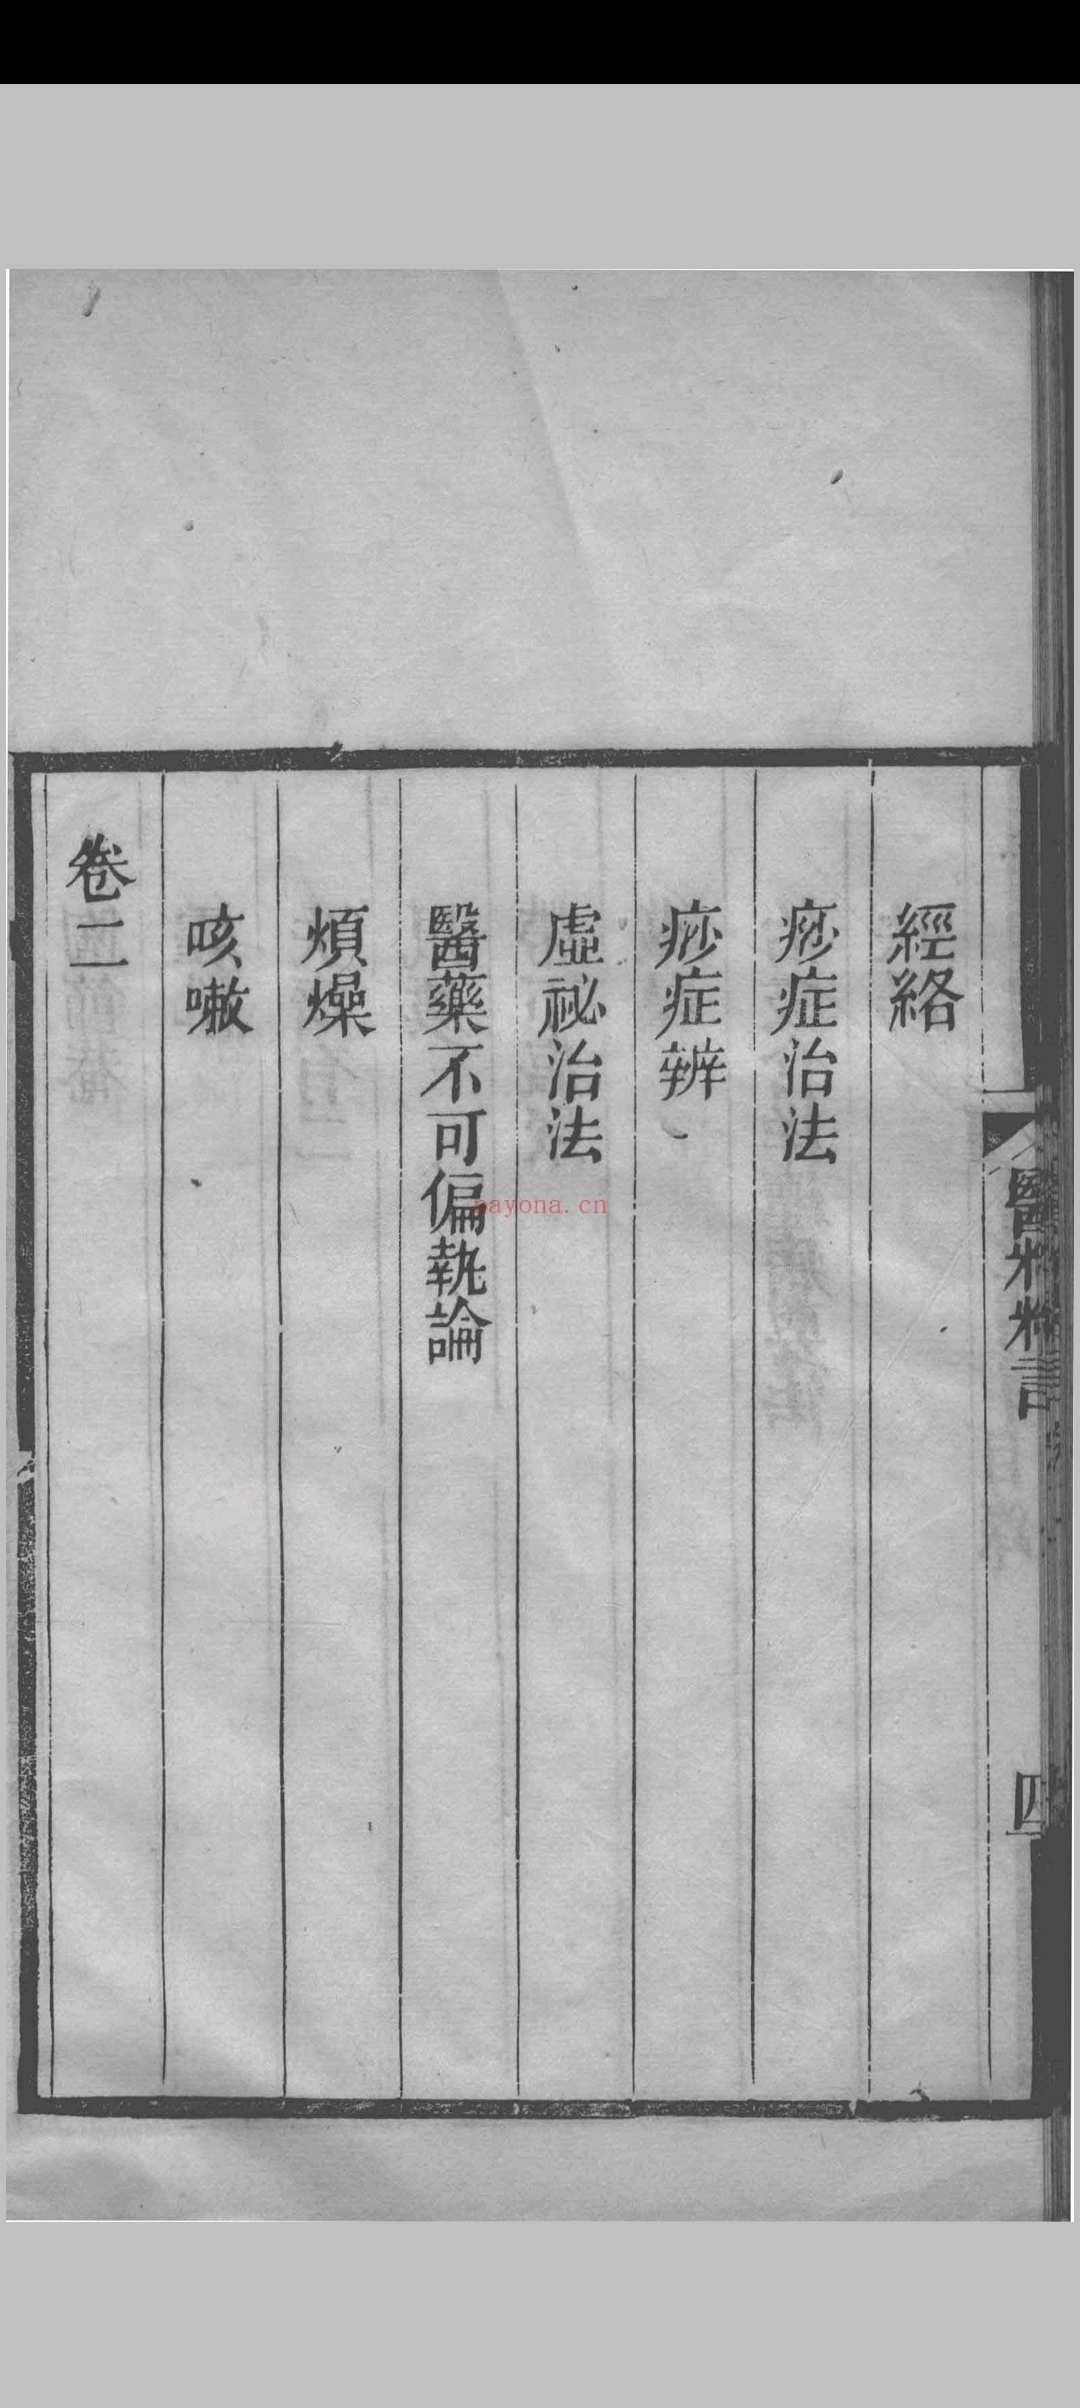 醫粹精言
四
經絡
痧症治法
痧症辨
虛祕治法
醫藥不可偏執論
煩燥
咳嗽
卷二
nayona.cn